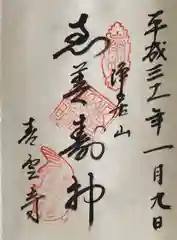 平成三十一年一月九日
浄居山
恵美壽神
青雲寺